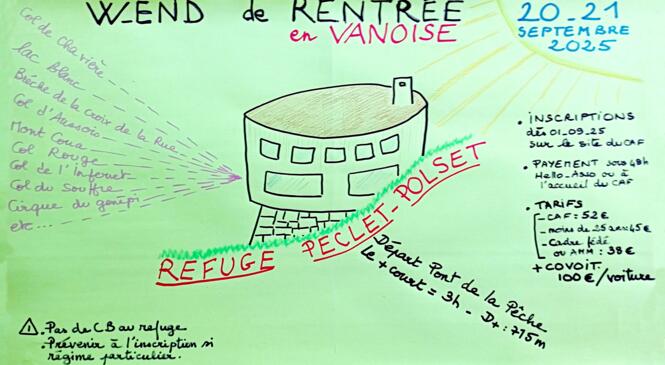 W-END de RENTRÉE
en VANOISE
20-21
SEPTEMBRE
2025
Col de Chavière
lac Blanc
Brèche de la Croix de la Rue
Col d'Aussois
Mont Coua
Col Rouge
Col de l'Infernet
Col du Souffre
Cirque du genépi
etc...
REFUGE PECLET-POLSET
Départ Pont de la Pêche
le + court = 3h - D+: 715m
• INSCRIPTIONS
dès 01-09-25
sur le site du CAF
• PAYEMENT sous 48h
Hello-Asso ou à
l'accueil du CAF
• TARIFS
- CAF: 52€
- moins de 25 ans: 45€
- Cadre fédé
ou AMM: 38€
+ COVOIT.
100€/voiture
⚠ • Pas de CB au refuge
• Prévenir à l'inscription si
régime particulier.